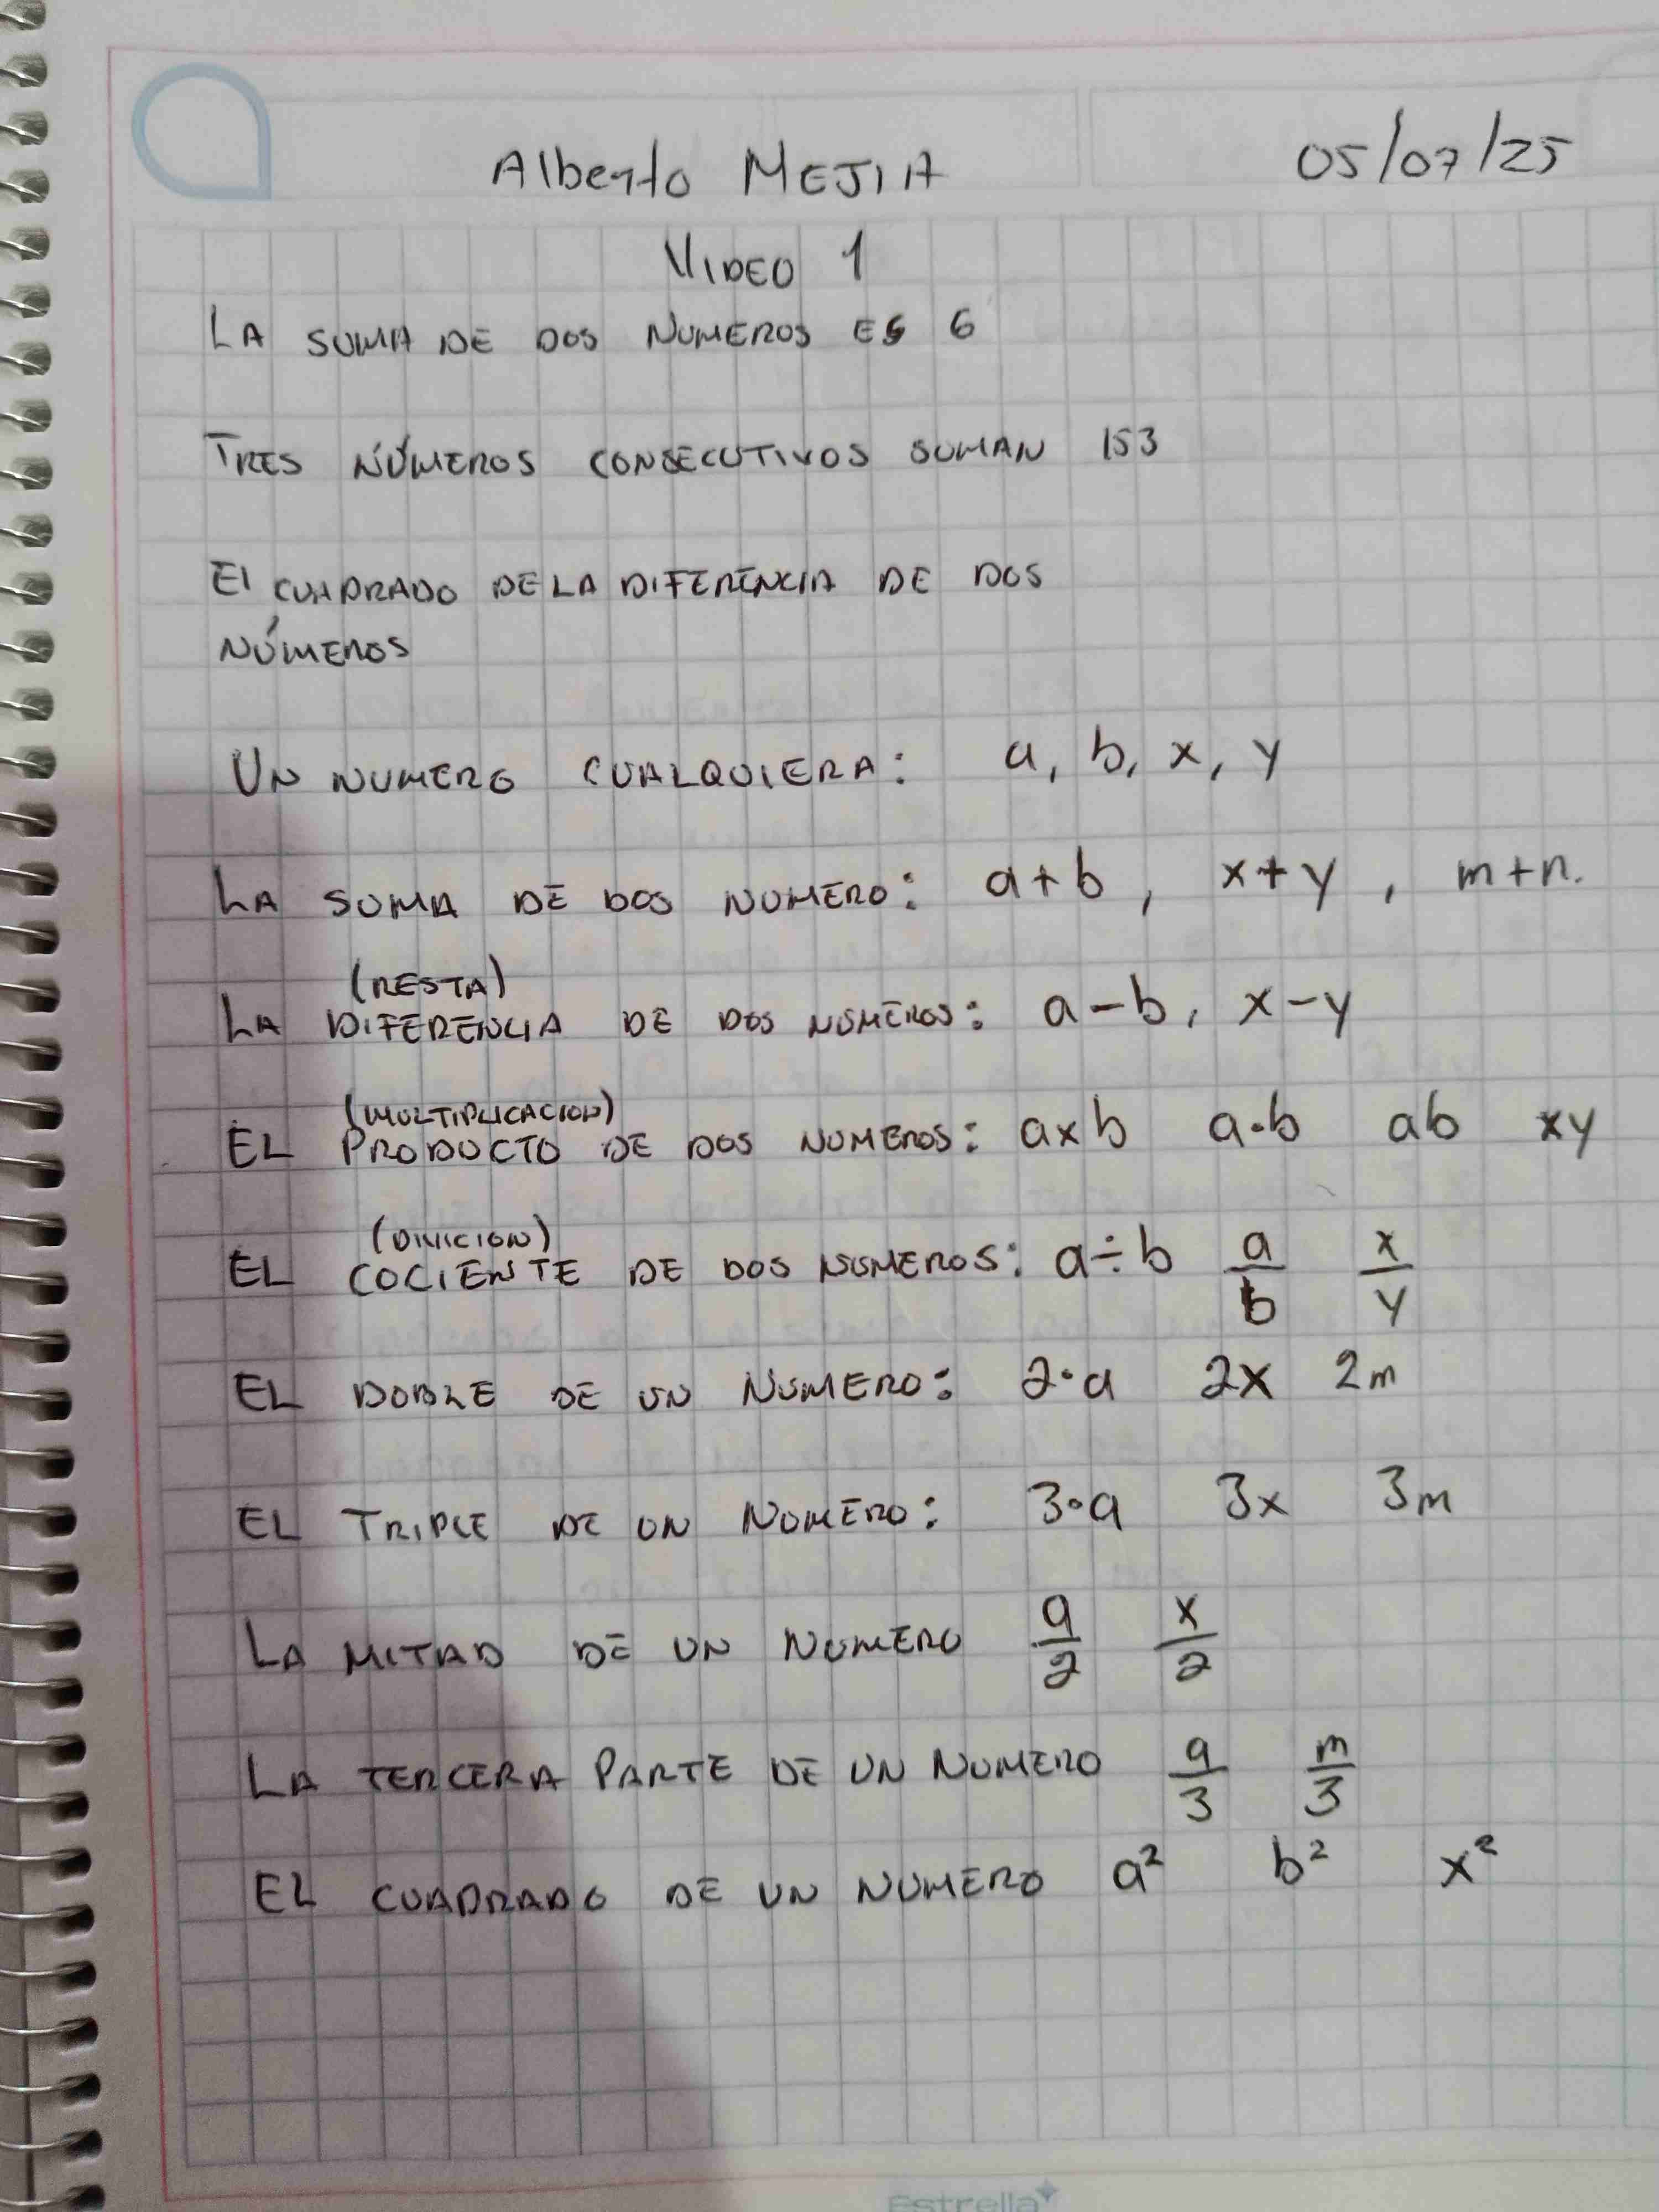 Alberto MEJIA 05/07/25
VIDEO 1
LA SUMA DE DOS NUMEROS ES 6
TRES NÚMEROS CONSECUTIVOS SUMAN 153
El CUADRADO DE LA DIFERENCIA DE DOS
NÚMEROS
UN NUMERO CUALQUIERA: a, b, x, y
LA SUMA DE DOS NUMERO: a+b, x+y, m+n.
(RESTA)
LA DIFERENCIA DE DOS NUMEROS: a-b, x-y
(MULTIPLICACION)
EL PRODUCTO DE DOS NUMEROS: axb a·b ab xy
(DIVICION)
EL COCIENTE DE DOS NUMEROS: a÷b a/b x/y
EL DOBLE DE UN NUMERO: 2·a 2x 2m
EL TRIPLE DE UN NUMERO: 3·a 3x 3m
LA MITAD DE UN NUMERO a/2 x/2
LA TERCERA PARTE DE UN NUMERO a/3 m/3
EL CUADRADO DE UN NUMERO a² b² x²
Estrella